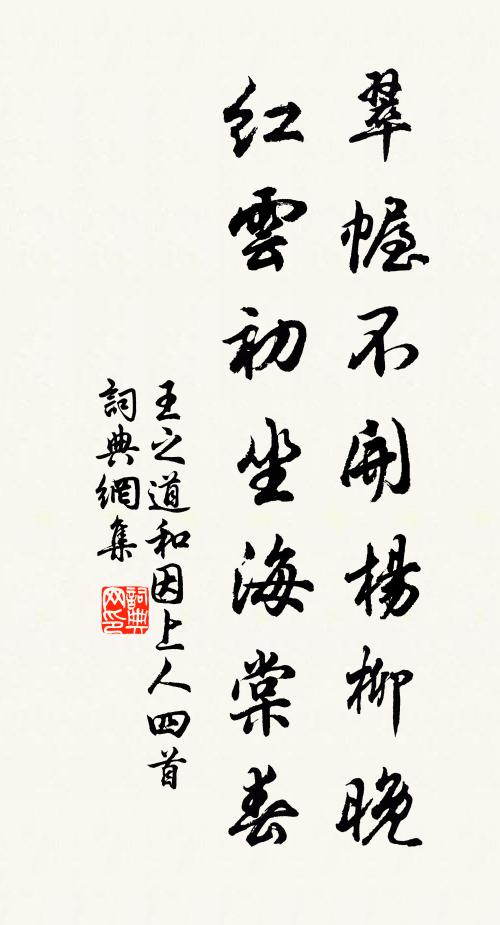 翠幄不開楊柳晚
紅雲初坐海棠春
王之道和因上人四首
詞典網集
詞典网印